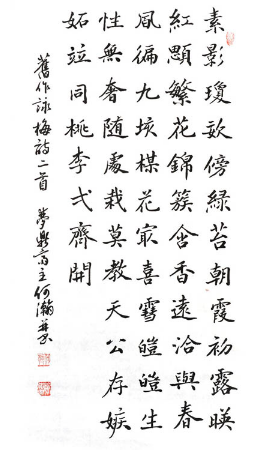 素影瓊姿傍緑苔朝霞初露暎
紅顋繁花錦簇含香遠洽與春
風徧九垓楳花冣喜雪皚皚生
性無奢随處栽莫教天公存嫉
妬竝同桃李弌齊開
舊作詠梅詩二首 夢鼎斋主何瀚并書